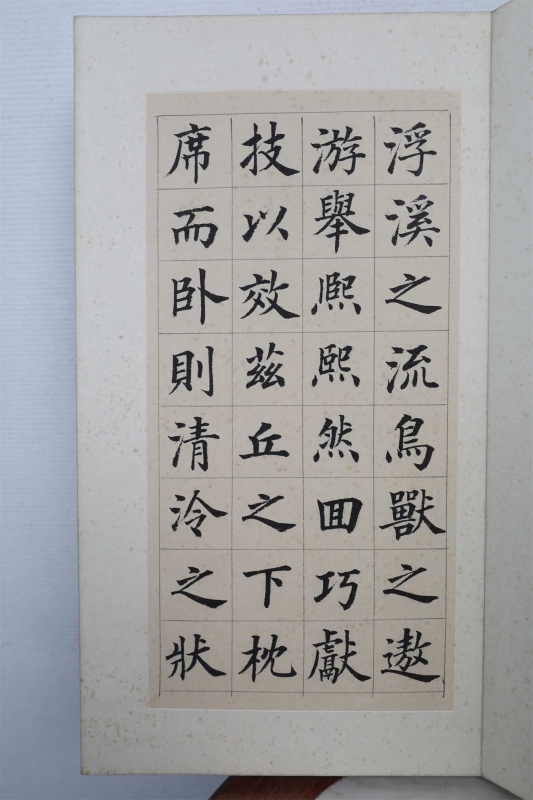 浮溪之流鳥獸之遨
游舉熙熙然囬巧獻
技以效茲丘之下枕
席而卧則清泠之狀